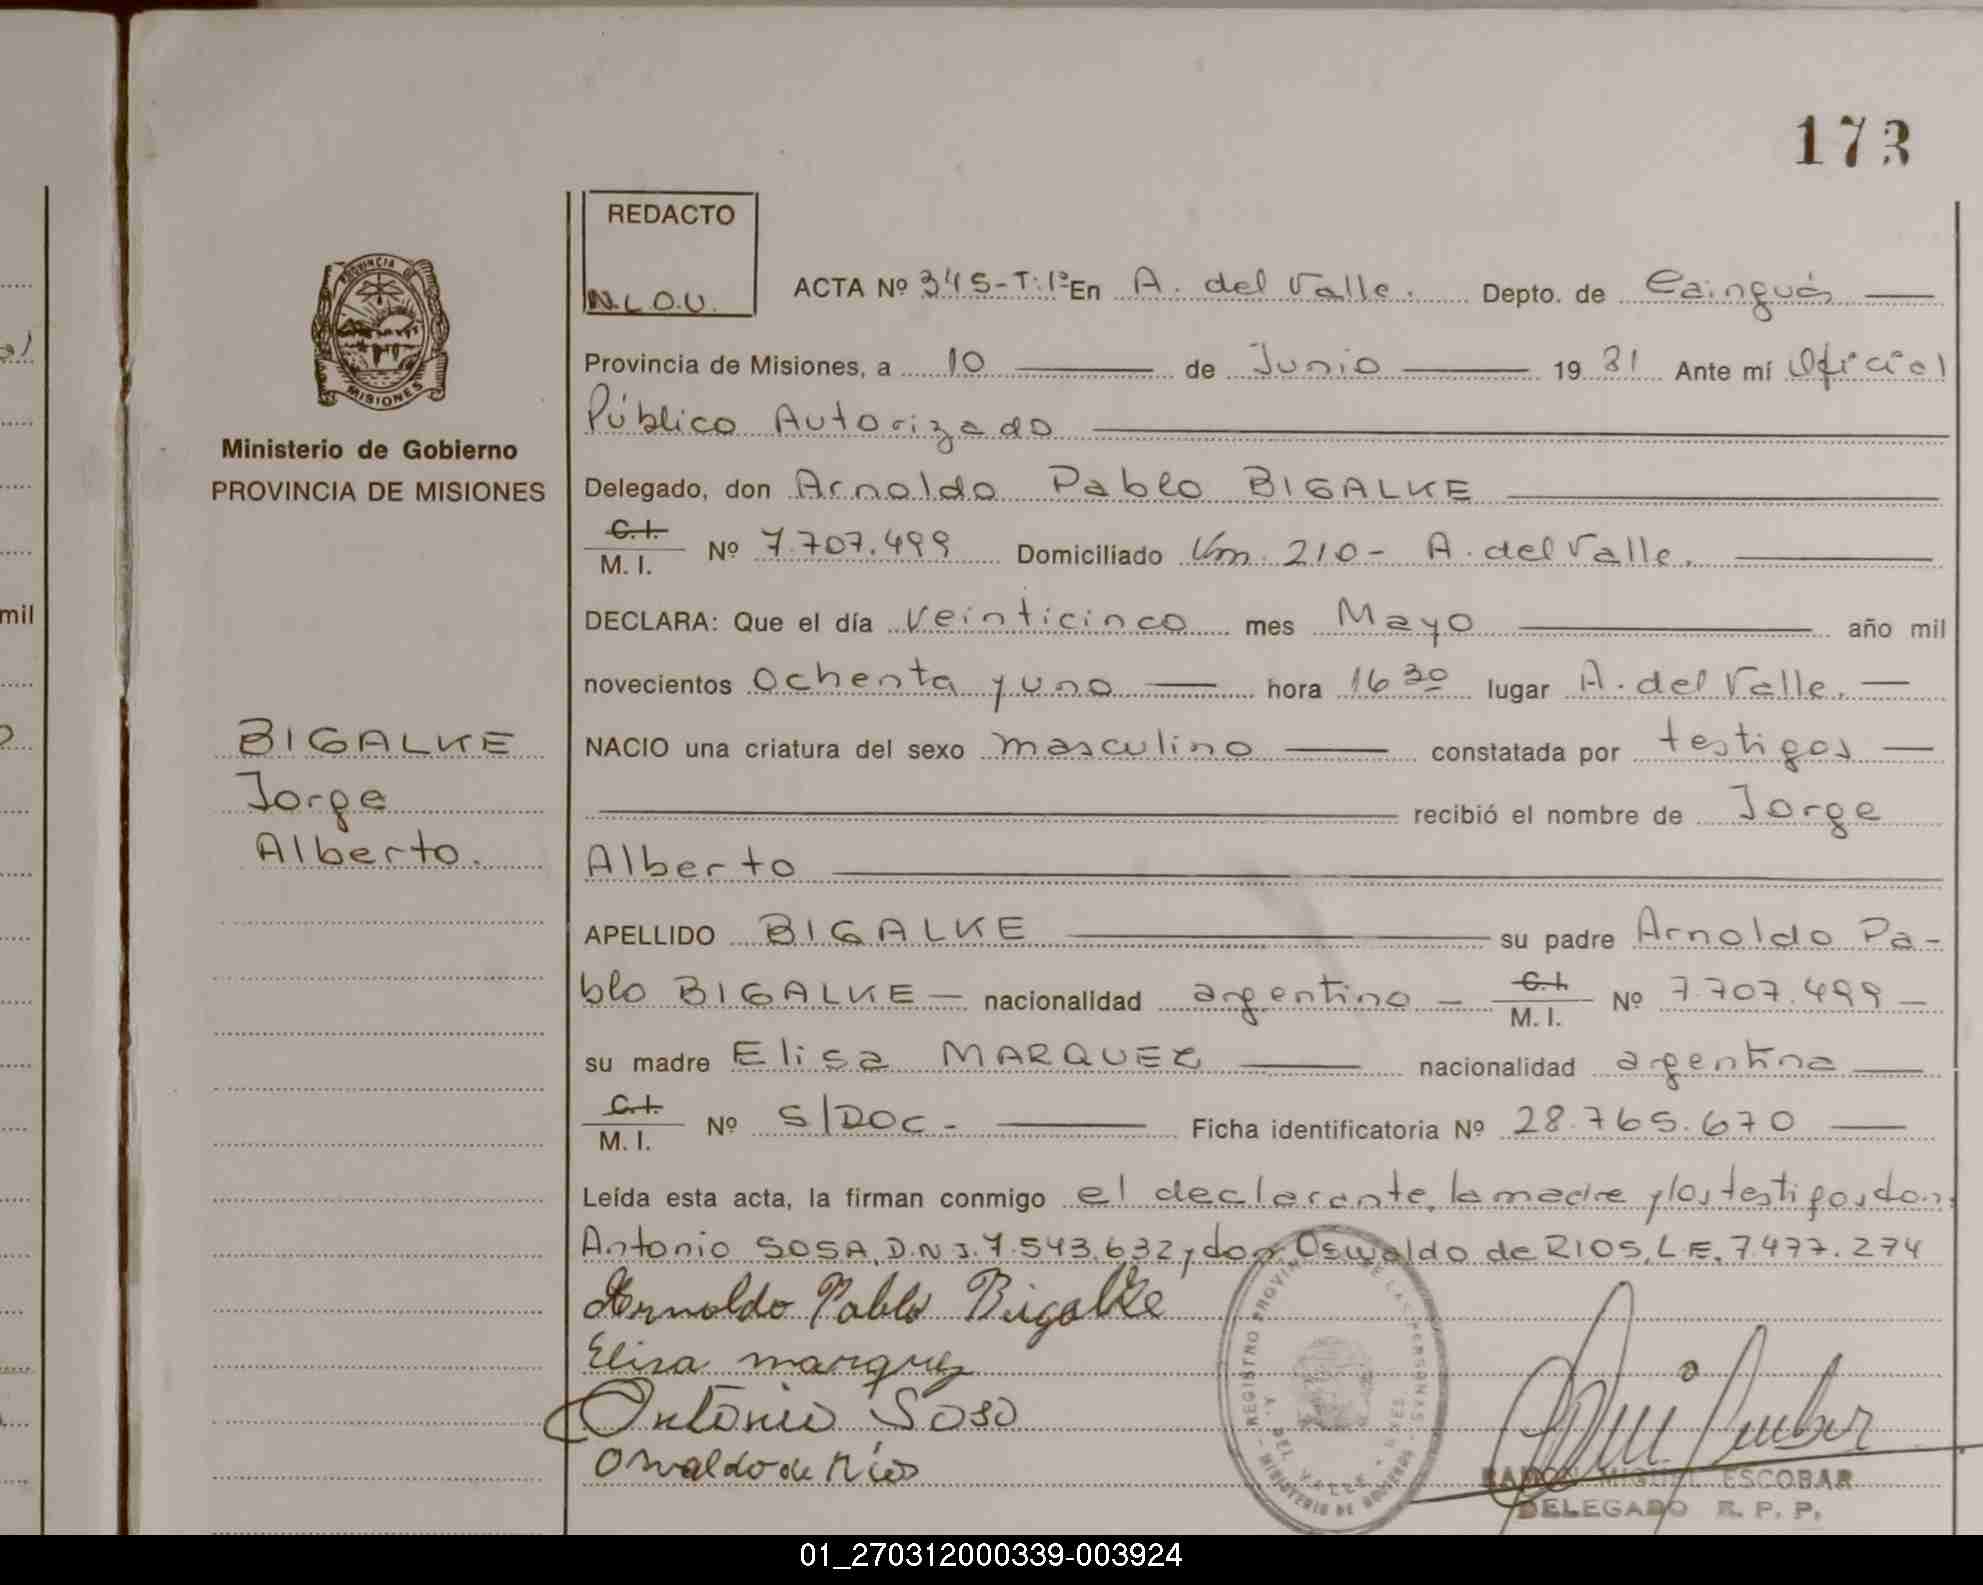 173
REDACTO
N.L.O.U.
ACTA Nº 345-T:1º En A. del Valle. Depto. de Cainguás
Provincia de Misiones, a 10 de Junio 1981 Ante mí Oficial
Público Autorizado
PROVINCIA DE
MISIONES
Ministerio de Gobierno
PROVINCIA DE MISIONES
Delegado, don Arnoldo Pablo BIGALKE
C.I.
M. I. Nº 7.707.499 Domiciliado Km. 210- A. del Valle.
DECLARA: Que el día veinticinco mes Mayo año mil
novecientos Ochenta y uno hora 16 30 lugar A. del Valle.
BIGALKE
Jorge
Alberto.
NACIO una criatura del sexo masculino constatada por testigos
recibió el nombre de Jorge
Alberto
APELLIDO BIGALKE su padre Arnoldo Pa-
blo BIGALKE nacionalidad argentino C.I. M. I. Nº 7.707.499
su madre Elisa MARQUEZ nacionalidad argentina
C.I.
M. I. Nº S/DOC- Ficha identificatoria Nº 28.765.670
Leída esta acta, la firman conmigo el declarante, la madre y los testigos don
Antonio SOSA, D.N.I. 7.543.632 y don Oswaldo de RIOS, L.E. 7.477.274
Arnoldo Pablo Bigalke
Elisa marquez
Antonio Soso
Osvaldo de Ríos
REGISTRO PROVINCIAL DE LAS PERSONAS
MINISTERIO DE GOBIERNO
RAMON MIGUEL ESCOBAR
DELEGADO R. P. P.
mil
01_270312000339-003924